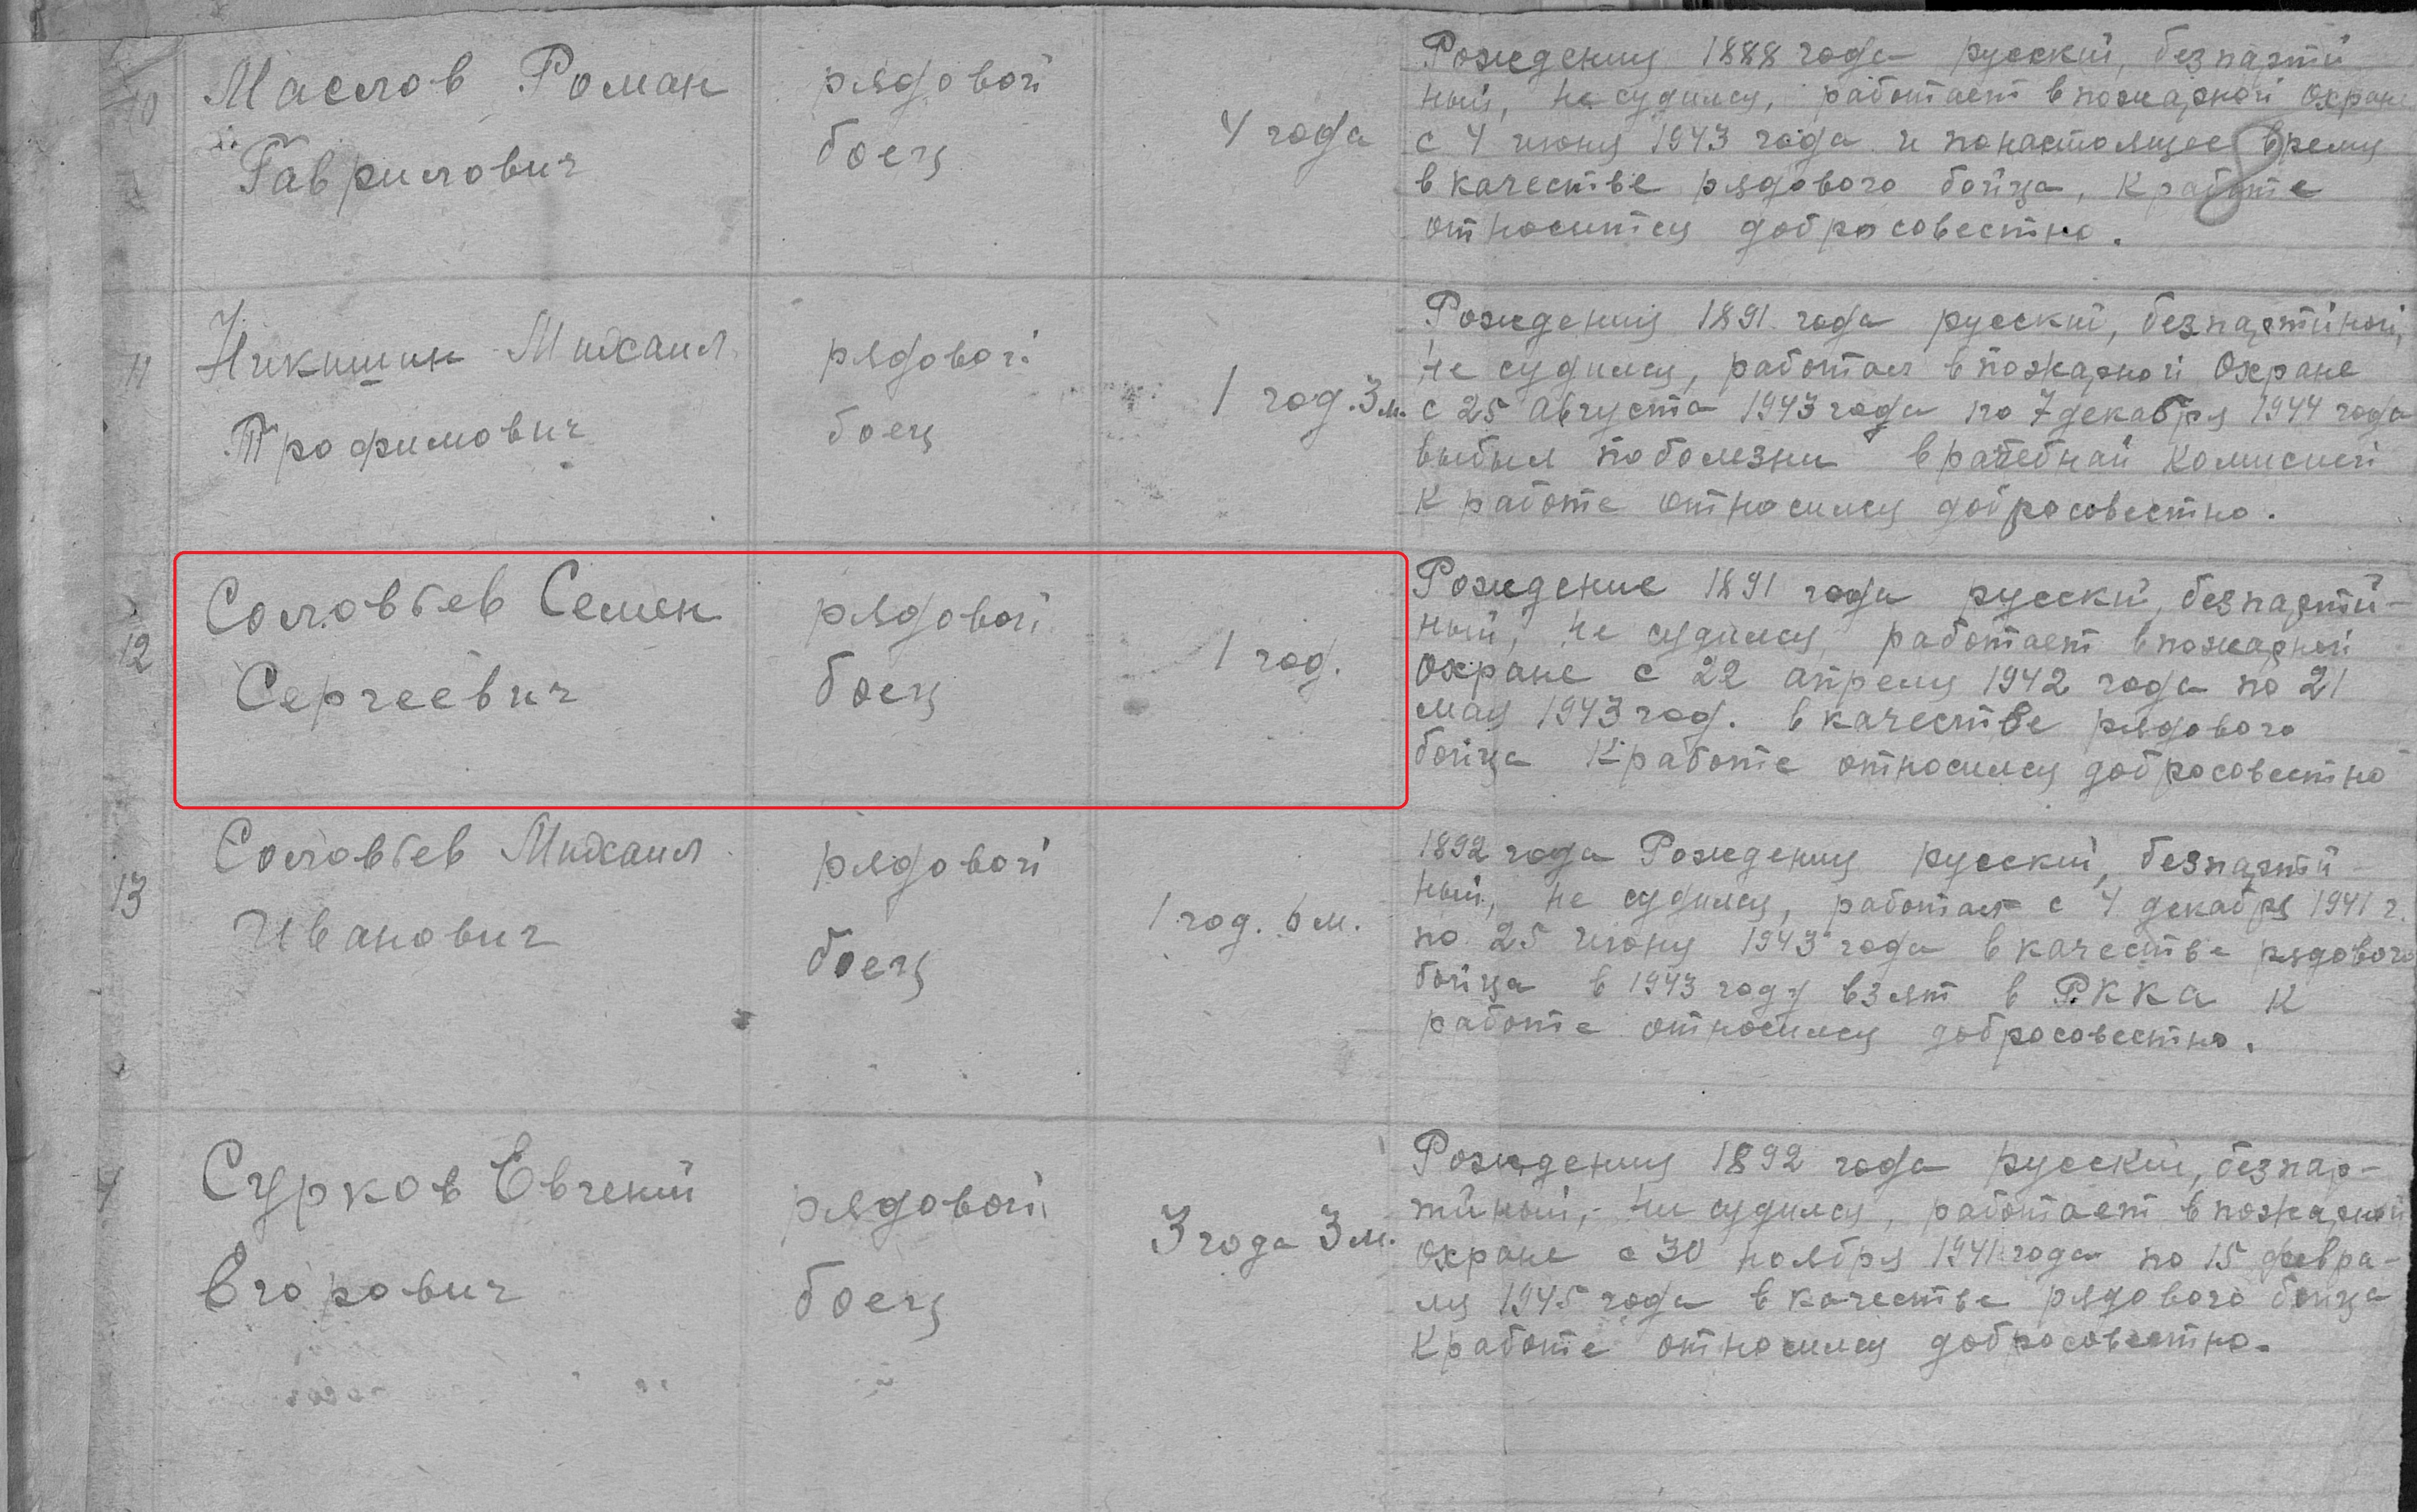 10
Маслов Роман
Гаврилович
рядовой
боец
4 года
Рождения 1888 года русский, безпартий
ный, не судимся, работает в пожарной охране
с 4 июня 1943 года и понастоящее время
в качестве рядового бойца, к работе
относится добросовестно.
11
Никишин Михаил
Трофимович
рядовой
боец
1 год. 3 м.
Рождения 1891 года русский, безпартийной,
не судимся, работал в пожарной Охране
с 25 августа 1943 года по 7 декабря 1944 года
выбыл поболезни врачебнай комисией
к работе относился добросовестно.
12
Соловьев Семен
Сергеевич
рядовой
боец
1 год.
Рождение 1891 года русский, безпартий-
ный, не судимся, работает в пожарной
Охране с 22 апреля 1942 года по 21
мая 1943 год. в качестве рядового
бойца К работе относился добросовестно
13
Соловьев Михаил
Иванович
рядовой
боец
1 год. 6 м.
1892 года Рождения русский, безпартий
ный, не судимся, работал с 4 декабря 1941 г.
по 25 июня 1943 года в качестве рядового
бойца в 1943 году взят в РККА к
работе относился добросовестно.
Сурков Евгений
Егорович
рядовой
боец
3 года 3 м.
Рождения 1892 года русский, безпар-
тийный, не судимся, работает в пожарной
охране с 30 ноября 1941 года по 15 февра-
ля 1945 года в качестве рядового бойца
К работе относился добросовестно.